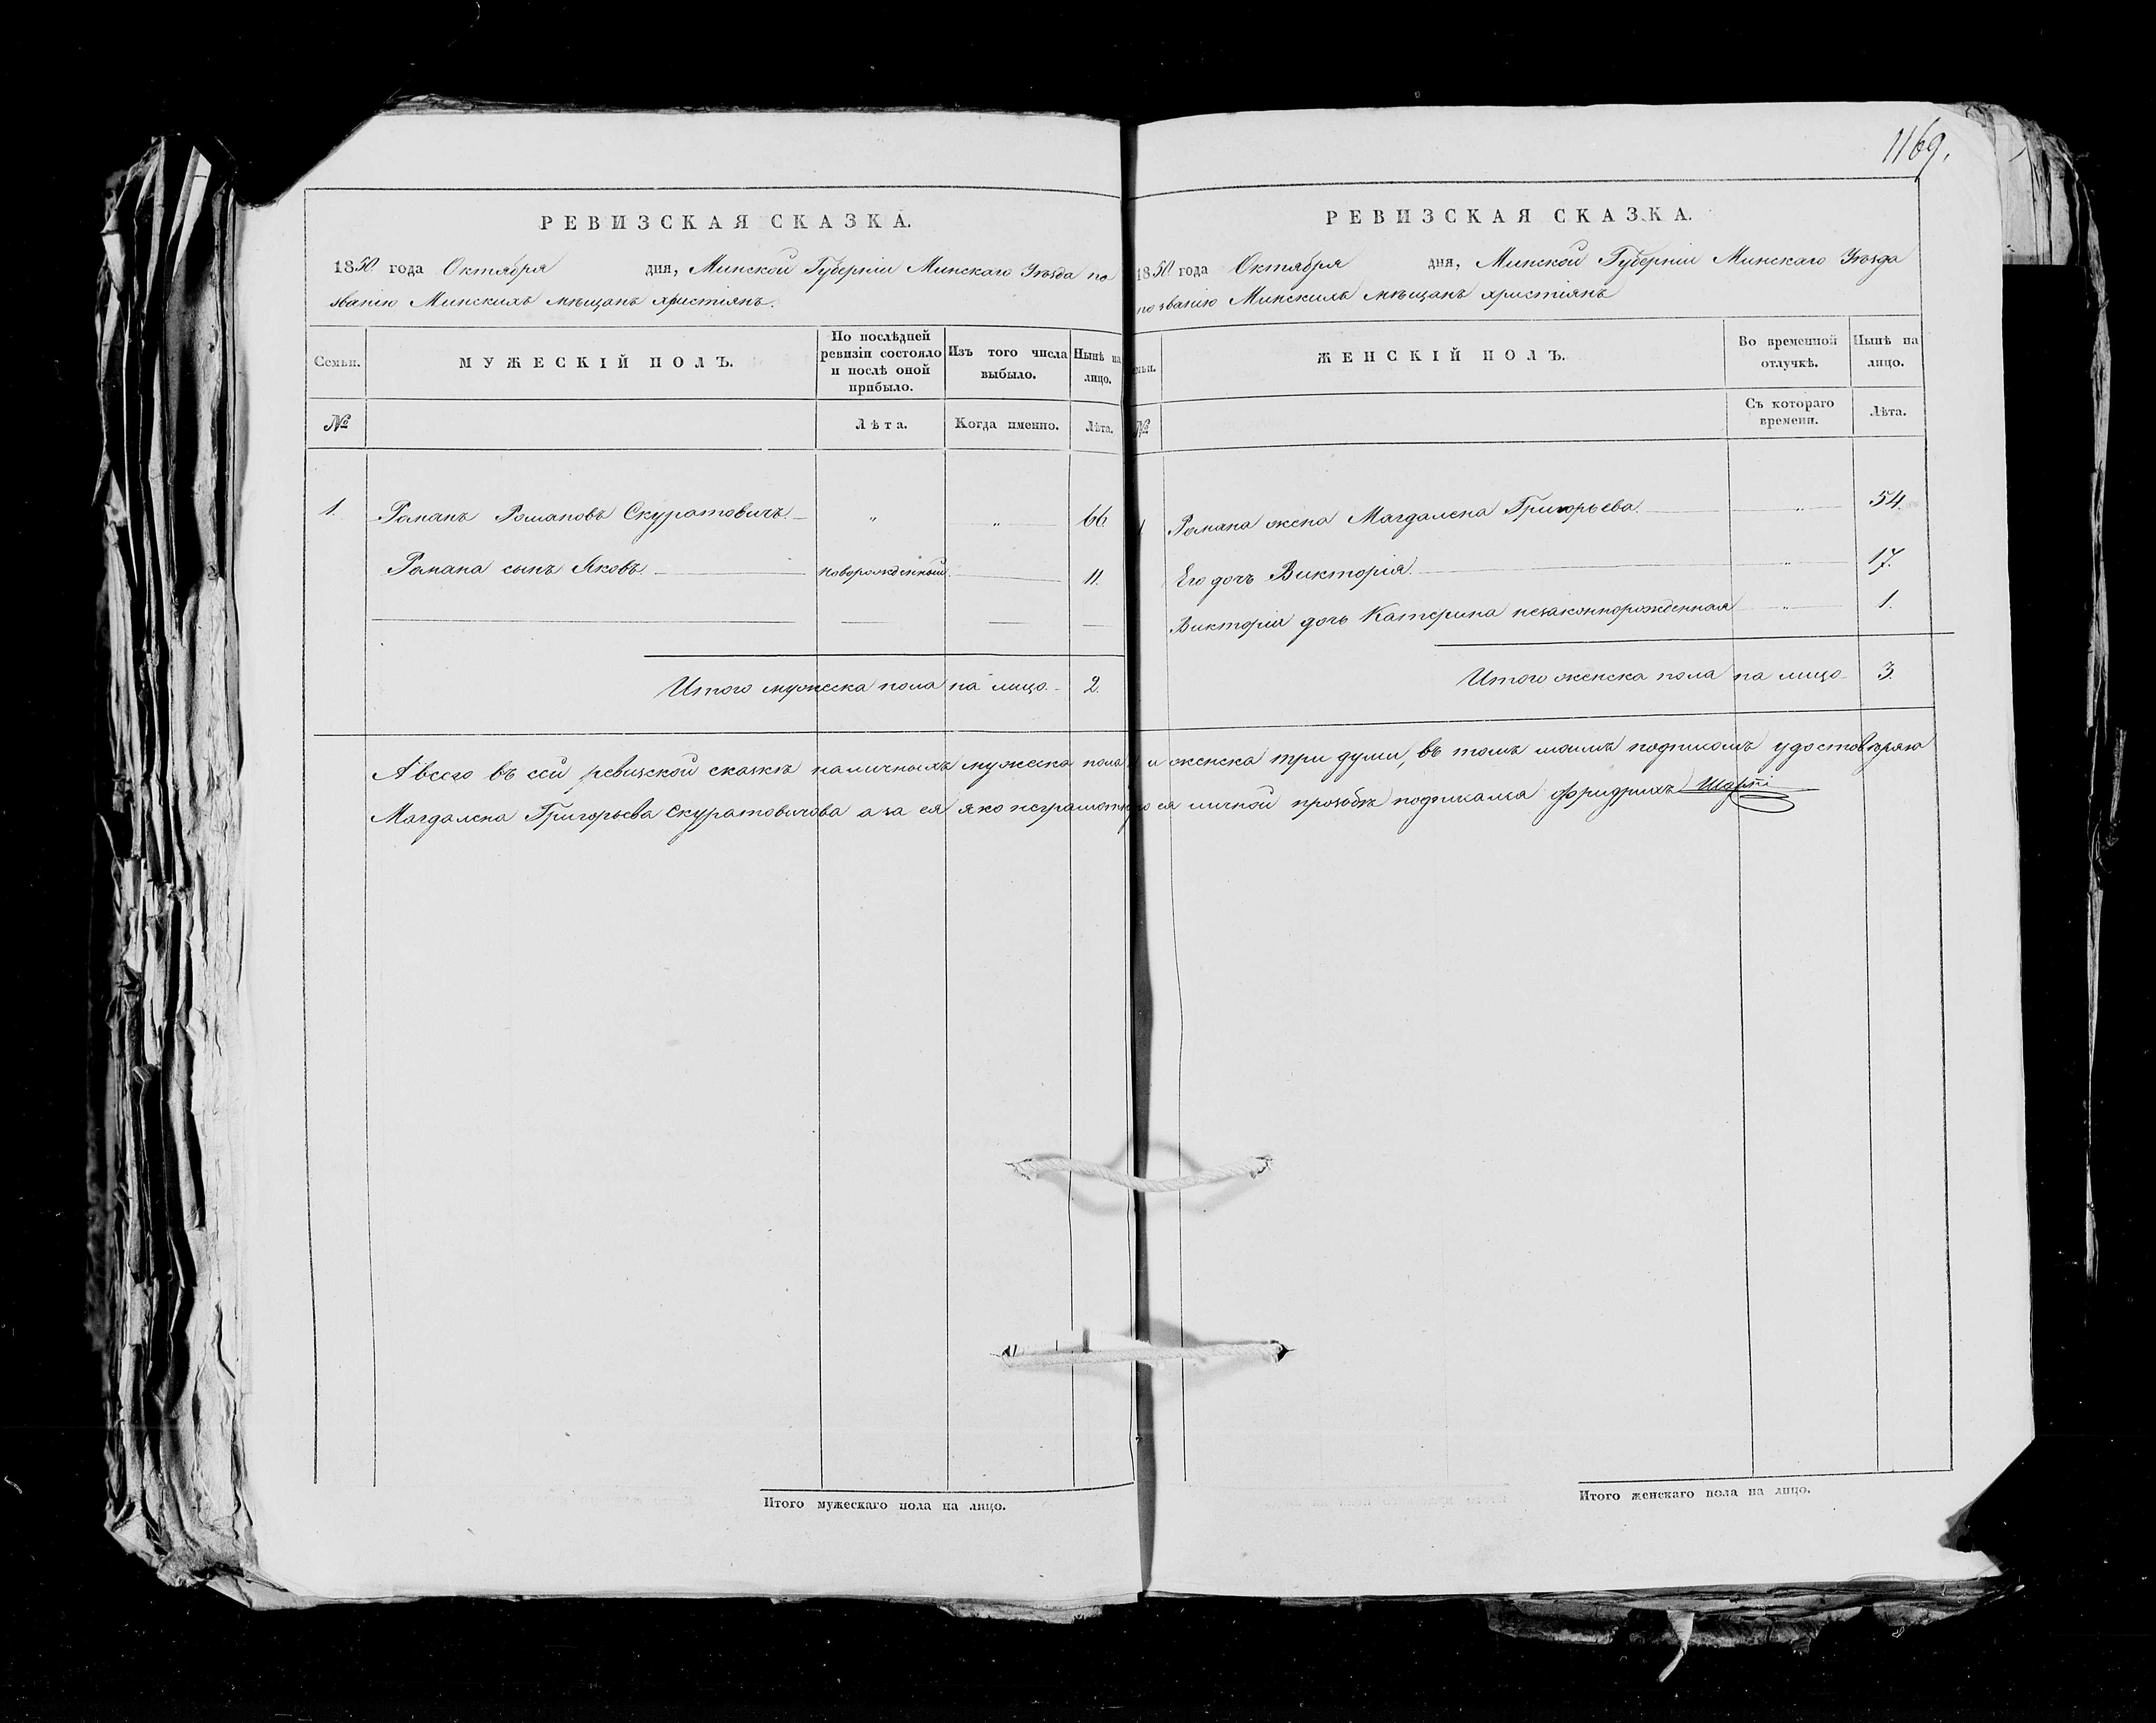 1169.
РЕВИЗСКАЯ СКАЗКА.
1850 года Октября дня, Минской Губерніи Минскаго Уѣзда по
званію Минскихъ мѣщанъ христіянъ.
Семьи.
МУЖЕСКІЙ ПОЛЪ.
По послѣдней ревизіи состояло и послѣ оной прибыло.
Изъ того числа выбыло.
Нынѣ на лицо.
№
Лѣта.
Когда именно.
Лѣта.
1. Романъ Романовъ Скуратовичъ. „ „ 66.
Романа сынъ Яковъ. новорожденный 11.
Итого мужеска пола на лицо 2.
РЕВИЗСКАЯ СКАЗКА.
1850 года Октября дня, Минской Губерніи Минскаго Уѣзда
по званію Минскихъ мѣщанъ христіянъ
ЖЕНСКІЙ ПОЛЪ.
Во временной отлучкѣ.
Нынѣ на лицо.
№
Съ котораго времени.
Лѣта.
1 Романа жена Магдалена Григорьева. „ 54.
Его дочъ Викторія. „ 17.
Викторіи дочь Катерина незаконнорожденная „ 1.
Итого женска пола на лицо 3.
А всего въ сей ревизской сказкѣ наличныхъ мужеска пола и женска три души, въ томъ моимъ подписомъ удостовѣряю
Магдалена Григорьева Скуратовичова а за ея яко неграмотную ея личной прозьбѣ подписался Фридрихъ
Итого мужескаго пола на лицо.
Итого женскаго пола на лицо.